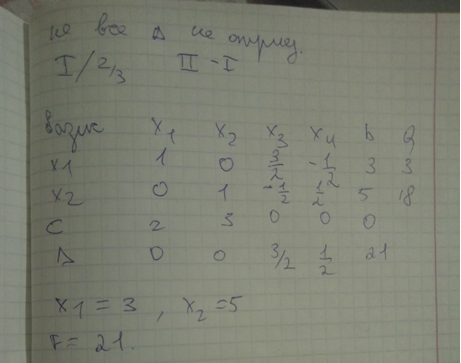 не все Δ не отриц.
I/2/3 II - I
базис x₁ x₂ x₃ x₄ b Q
x1 1 0 3/2 -1/2 3 3
x2 0 1 -1/2 1/2 5 18
C 2 3 0 0 0
Δ 0 0 3/2 1/2 21
x1 = 3 , x₂ = 5
F = 21.